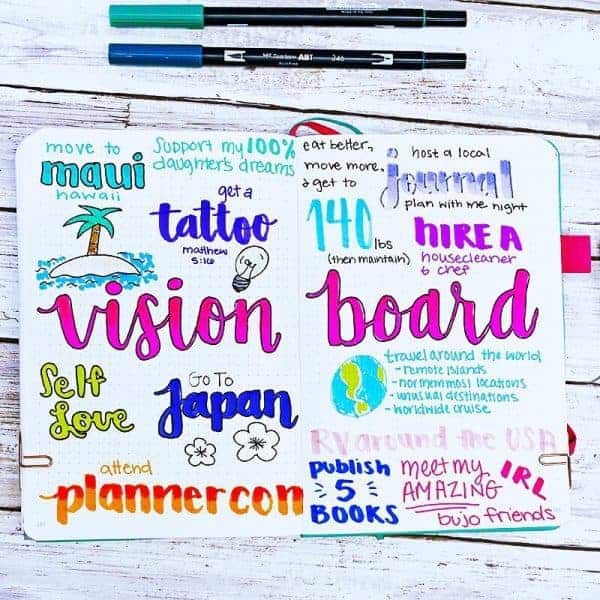 ABT
346
move to
maui
hawaii
Support my 100%
daughter's dreams
get a
tattoo
matthew
5:16
vision
Self
Love
GO TO
Japan
attend
plannercon
eat better,
move more,
& get to
140
lbs
(then maintain)
host a local
journal
plan with me night
HIRE A
housecleaner
& chef
board
travel around the world
- remote islands
- northernmost locations
- unusual destinations
- worldwide cruise
RV around the USA
publish
5
BOOKS
meet my
AMAZING
IRL
bujo friends